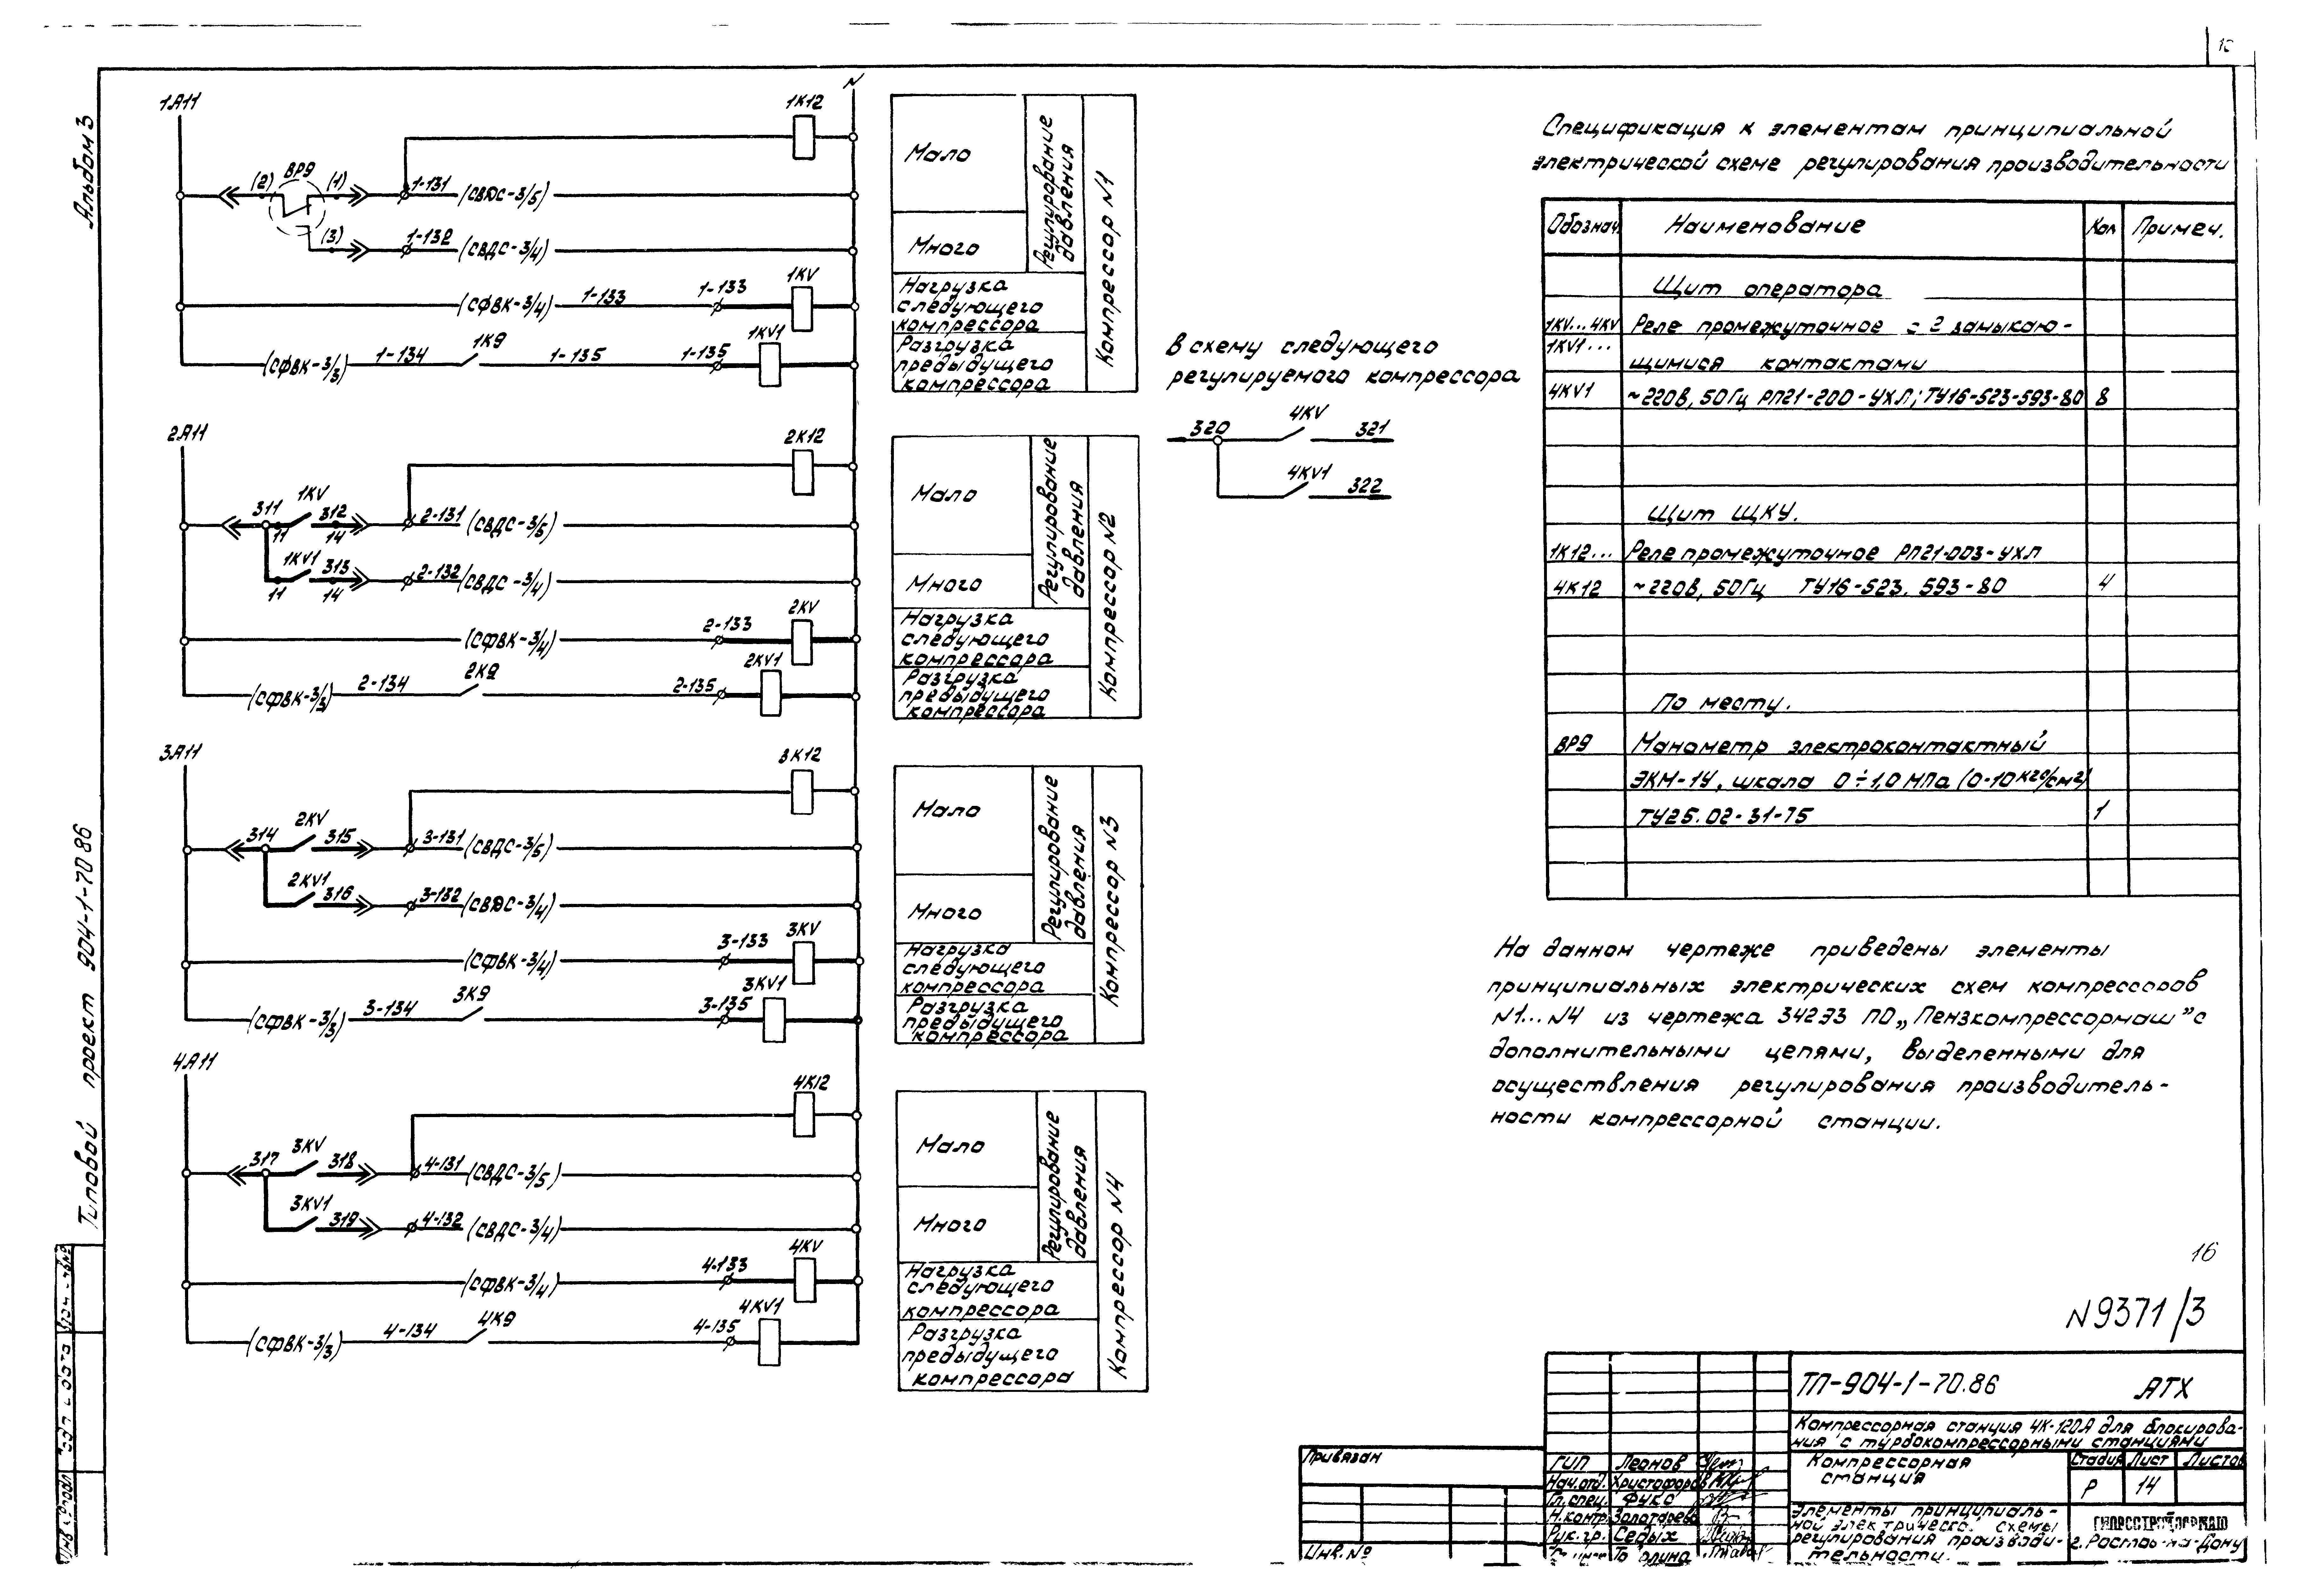 Альбом 3
Типовой проект 904-1-70.86
1А11
1К12
N
(2)
ВР9
(1)
1-131
(СВДС-3/5)
(3)
1-132
(СВДС-3/4)
(СФВК-3/4)
1-133
1-133
1KV
(СФВК-3/3)
1-134
1К9
1-135
1-135
1KV1
Мало
Много
Регулирование
давления
Нагрузка
следующего
компрессора
Разгрузка
предыдущего
компрессора
Компрессор N1
2А11
2К12
311
1KV
312
11
14
2-131
(СВДС-3/5)
1KV1
313
11
14
2-132
(СВДС-3/4)
(СФВК-3/4)
2-133
2KV
(СФВК-3/3)
2-134
2К9
2-135
2KV1
Мало
Много
Регулирование
давления
Нагрузка
следующего
компрессора
Разгрузка
предыдущего
компрессора
Компрессор N2
3А11
3К12
314
2KV
315
3-131
(СВДС-3/5)
2KV1
316
3-132
(СВДС-3/4)
(СФВК-3/4)
3-133
3KV
(СФВК-3/3)
3-134
3К9
3-135
3KV1
Мало
Много
Регулирование
давления
Нагрузка
следующего
компрессора
Разгрузка
предыдущего
компрессора
Компрессор N3
4А11
4К12
317
3KV
318
4-131
(СВДС-3/5)
3KV1
319
4-132
(СВДС-3/4)
(СФВК-3/4)
4-133
4KV
(СФВК-3/3)
4-134
4К9
4-135
4KV1
Мало
Много
Регулирование
давления
Нагрузка
следующего
компрессора
Разгрузка
предыдущего
компрессора
Компрессор N4
В схему следующего
регулируемого компрессора
320
4KV
321
4KV1
322
Спецификация к элементам принципиальной
электрической схеме регулирования производительности
Обознач. Наименование Кол Примеч.
Щит оператора
1KV...4KV Реле промежуточное с 2 замыкаю-
1KV1... щимися контактами
4KV1 ~220в, 50Гц РП21-200-УХЛ; ТУ16-523-593-80 8
Щит ЩКУ.
1К12... Реле промежуточное РП21-003-УХЛ
4К12 ~220в, 50Гц ТУ16-523. 593-80 4
По месту.
ВР9 Манометр электроконтактный
ЭКМ-1У, шкала 0÷1,0 МПа (0-10 кгс/см2)
ТУ25.02-31-75 1
На данном чертеже приведены элементы
принципиальных электрических схем компрессоров
N1...N4 из чертежа 342ЭЗ ПО „Пензкомпрессормаш" с
дополнительными цепями, выделенными для
осуществления регулирования производитель-
ности компрессорной станции.
16
N9371/3
ТП-904-1-70.86 АТХ
Компрессорная станция 4К-120А для блокирова-
ния с турбокомпрессорными станциями
Компрессорная
станция
Стадия Лист Листов
Р 14
Элементы принципиаль-
ной электрическо. схемы
регулирования производи-
тельности.
г. Ростов-на-Дону
ГИП Леонов
Нач.отд. Христофоров
Гл.спец. Фукс
Н.контр. Золотарева
Рук.гр. Седых
Привязан
Инв.№